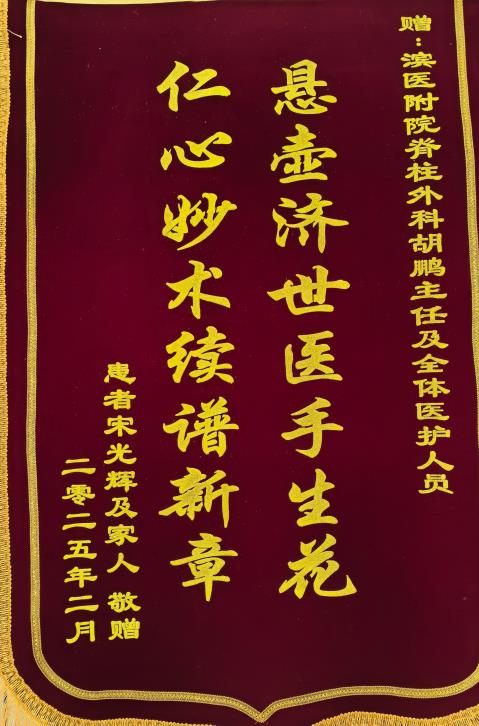 赠：滨医附院脊柱外科胡鹏主任及全体医护人员
悬壶济世医手生花
仁心妙术续谱新章
患者宋光辉及家人 敬赠
二零二五年二月